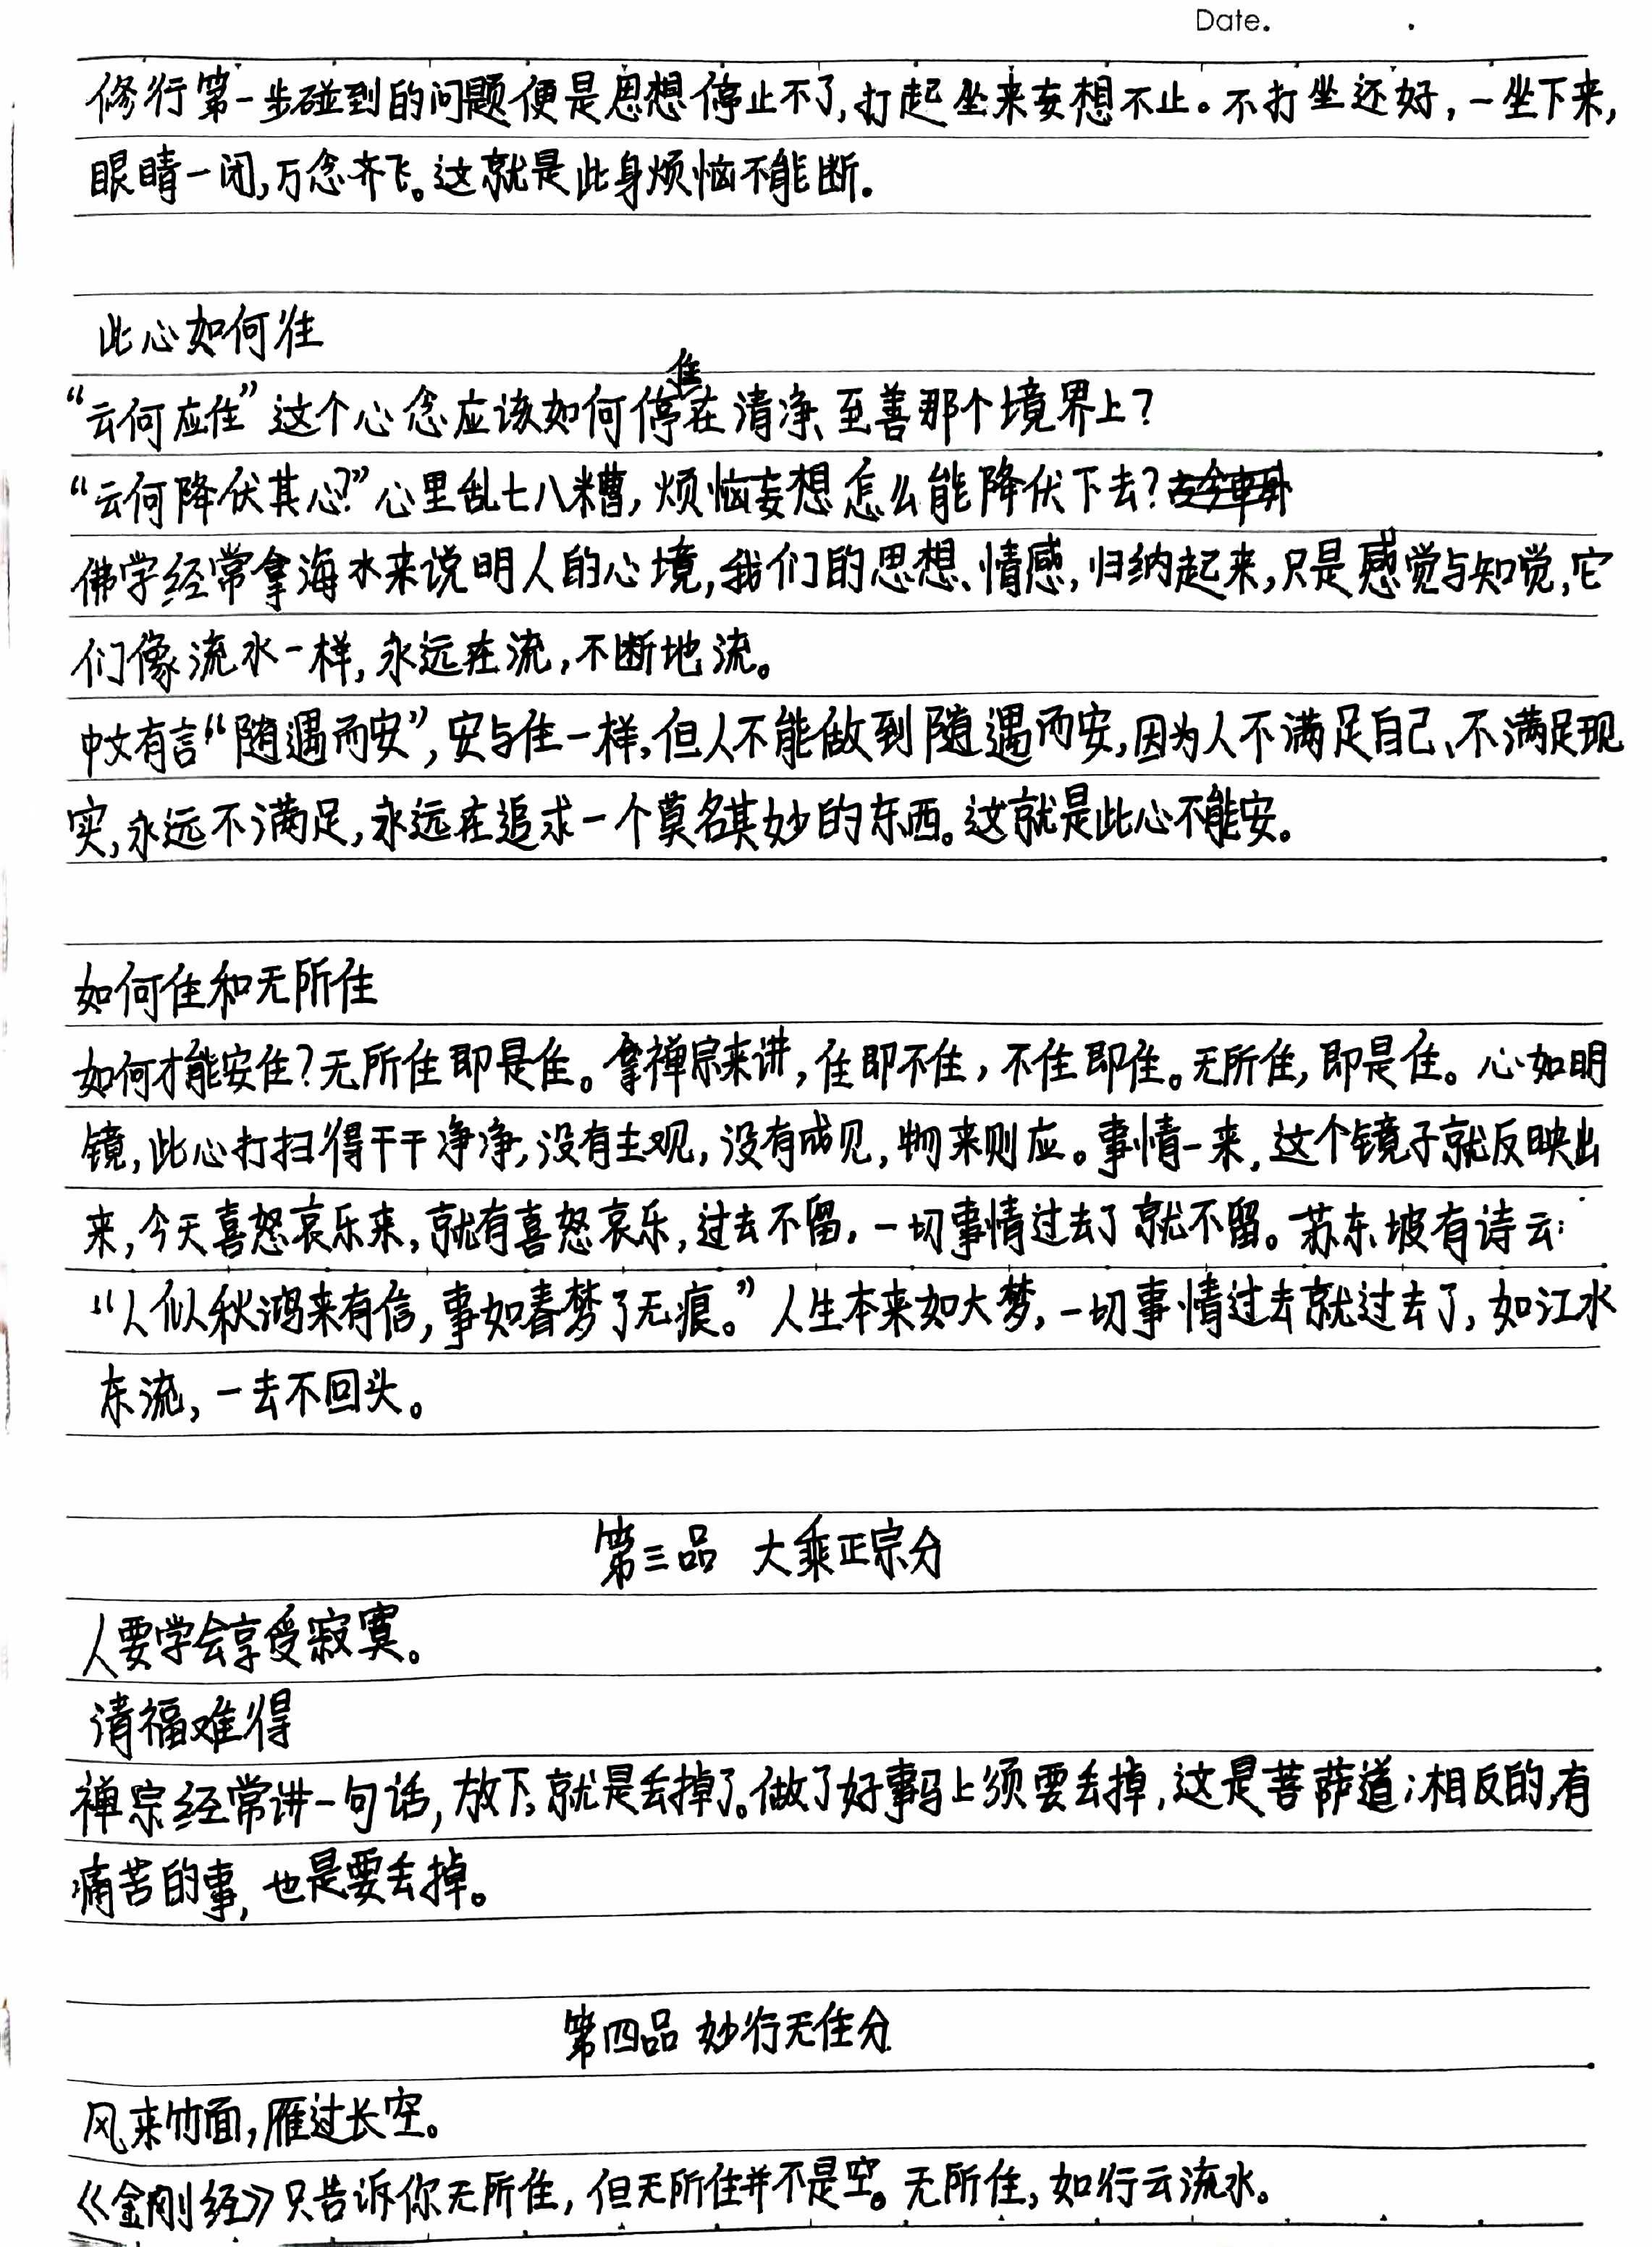 Date.
修行第一步碰到的问题便是思想停止不了,打起坐来妄想不止。不打坐还好,一坐下来,
眼睛一闭,万念齐飞。这就是此身烦恼不能断.
此心如何住
“云何应住”这个心念应该如何停住在清净、至善那个境界上?
“云何降伏其心?”心里乱七八糟,烦恼妄想怎么能降伏下去?
佛学经常拿海水来说明人的心境,我们的思想、情感,归纳起来,只是感觉与知觉,它
们像流水一样,永远在流,不断地流。
中文有言“随遇而安”,安与住一样,但人不能做到随遇而安,因为人不满足自己、不满足现
实,永远不满足,永远在追求一个莫名其妙的东西。这就是此心不能安。
如何住和无所住
如何才能安住?无所住即是住。拿禅宗来讲,住即不住,不住即住。无所住,即是住。心如明
镜,此心打扫得干干净净,没有主观,没有成见,物来则应。事情一来,这个镜子就反映出
来,今天喜怒哀乐来,就有喜怒哀乐,过去不留,一切事情过去了就不留。苏东坡有诗云:
“人似秋鸿来有信,事如春梦了无痕。”人生本来如大梦,一切事情过去就过去了,如江水
东流,一去不回头。
第三品 大乘正宗分
人要学会享受寂寞。
清福难得
禅宗经常讲一句话,放下,就是丢掉了。做了好事马上须要丢掉,这是菩萨道;相反的,有
痛苦的事,也是要丢掉。
第四品 妙行无住分
风来竹面,雁过长空。
《金刚经》只告诉你无所住,但无所住并不是空。无所住,如行云流水。